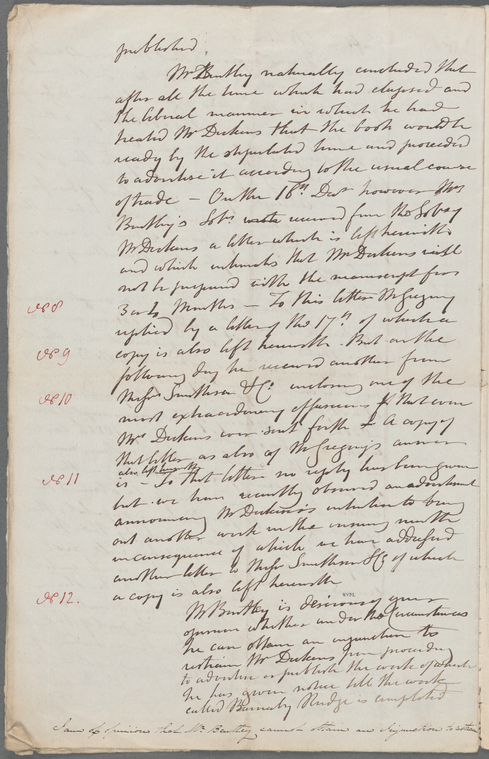 published.
Mr Bentley naturally concluded that
after all the time which had elapsed and
the liberal manner in which he had
treated Mr Dickens that the book would be
ready by the stipulated time and proceeded
to advertise it according to the usual course
of trade — On the 16th Decr however Mr
Bentley's Solrs received from the Solrs of
Mr Dickens a letter which is left herewith
and which intimates that Mr Dickens will
not be prepared with the manuscript for
No 8
3 or 4 Months — To this letter Mr Gregory
replied by a letter of the 17th of which a
No 9
copy is also left herewith. But on the
following day he received another from
No 10
Messrs Smithson & Co. inclosing one of the
most extraordinary effusions that even
Mr Dickens ever sent forth & A copy of
that letter as also of Mr Gregory's answer
also left herewith
No 11
is — To that letter no reply has been given
but we have recently observed an advertisement
announcing Mr Dickens's intention to bring
out another work in the ensuing month
in consequence of which we have addressed
another letter to Messrs Smithson & Co of which
No 12.
a copy is also left herewith
NYPL
Mr Bentley is desirous of your
opinion whether under the Circumstances
he can obtain an injunction to
restrain Mr Dickens from proceeding
to advertise or publish the work of which
he has given notice till the work
called Barnaby Rudge is completed
I am of opinion that Mr Bentley cannot obtain an Injunction to